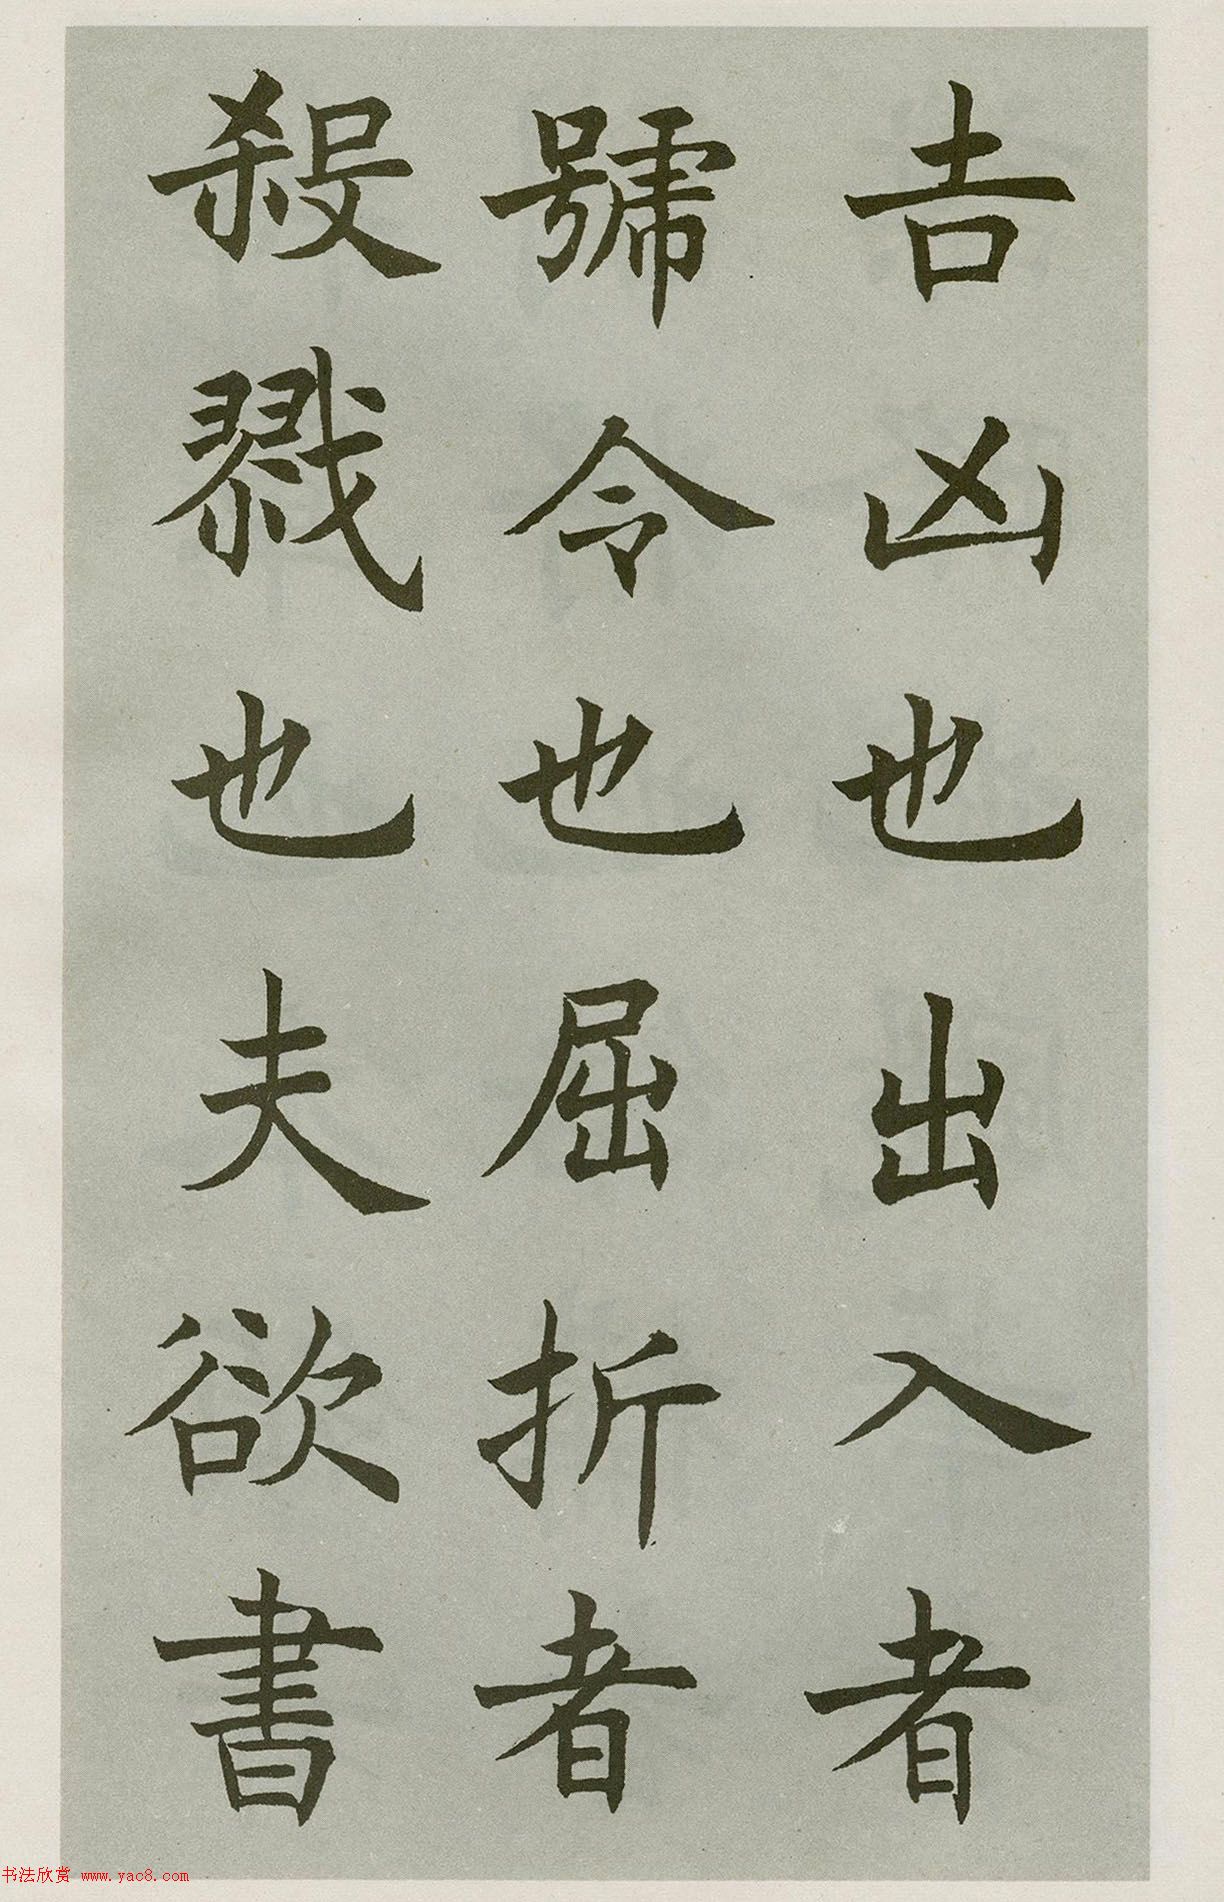 吉凶也出入者
號令也屈折者
殺戮也夫欲書
书法欣赏 www.yac8.com